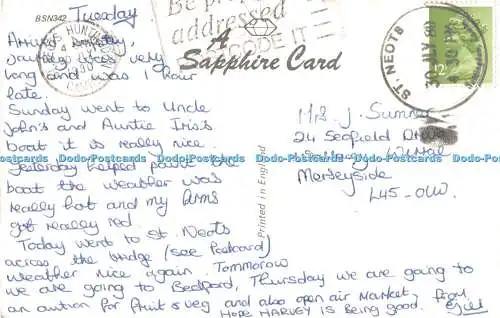 BSN342
Tuesday
Be
addressed
CODE IT
A
Sapphire Card
ST. NEOTS
12
Arrived
Journey was very
long and was 1 hour
late.
Sunday went to Uncle
John's and Auntie Iris's
boat it is really nice.
Yesterday helped paint the
boat the weather was
really hot and my Arms
got really red.
Today went to St. Neots
across the bridge (see Postcard)
Weather nice again. Tommorow
we are going to Bedford, Thursday we are going to
an aution for fruit & veg and also open air Market, from
HOPE HARVEY IS BEING GOOD. Gill
Printed in England
J. Sumner
24 Seafield Drive
Merseyside
L45-0UU
Dodo-Postcards Dodo-Postcards Dodo-Postcards Dodo-Postcards Dodo-Postcards Dodo-Postcards